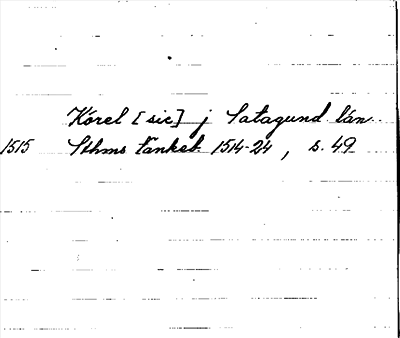 Korel [sic] j Satagund län.
1515 Sthms tänkeb. 1514-24, s. 49